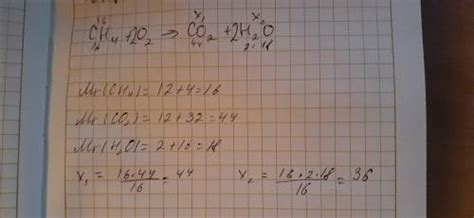 16 x₁ x₂
CH₄ + 2O₂ → CO₂ + 2H₂O
12 44 2·18
Mr(CH₄) = 12+4 = 16
Mr(CO₂) = 12+32 = 44
Mr(H₂O) = 2+16 = 18
x₁ = 16·44 / 16 = 44 x₂ = 16·2·18 / 16 = 36